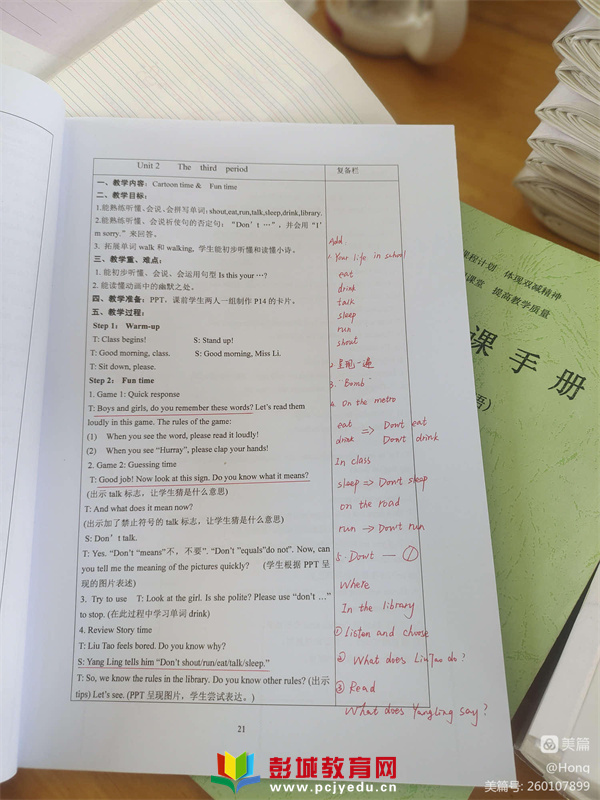 Unit 2 The third period
复备栏
一、教学内容：Cartoon time & Fun time
二、教学目标：
1.能熟练听懂、会说、会拼写单词：shout,eat,run,talk,sleep,drink,library.
2.能熟练听懂、会说祈使句的否定句：“Don’t …”，并会用“I’
m sorry.”来回答。
3. 拓展单词 walk 和 walking, 学生能初步听懂和读懂小诗。
三、教学重、难点：
1. 能初步听懂、会说、会运用句型 Is this your …?
2. 能读懂动画中的幽默之处。
四、教学准备：PPT，课前学生两人一组制作 P14 的卡片。
五、教学过程：
Step 1: Warm-up
T: Class begins! S: Stand up!
T: Good morning, class. S: Good morning, Miss Li.
T: Sit down, please.
Step 2: Fun time
1. Game 1: Quick response
T: Boys and girls, do you remember these words? Let’s read them
loudly in this game. The rules of the game:
(1) When you see the word, please read it loudly!
(2) When you see “Hurray”, please clap your hands!
2. Game 2: Guessing time
T: Good job! Now look at this sign. Do you know what it means?
(出示 talk 标志，让学生猜是什么意思)
T: And what does it mean now?
(出示加了禁止符号的 talk 标志，让学生猜是什么意思)
S: Don’t talk.
T: Yes. “Don’t “means”不，不要”. “Don’t ”equals”do not”. Now, can
you tell me the meaning of the pictures quickly? (学生根据 PPT 呈
现的图片表述)
3. Try to use T: Look at the girl. Is she polite? Please use “don’t …”
to stop. (在此过程中学习单词 drink)
4. Review Story time
T: Liu Tao feels bored. Do you know why?
S: Yang Ling tells him “Don’t shout/run/eat/talk/sleep.”
T: So, we know the rules in the library. Do you know other rules? (出示
tips) Let’s see. (PPT 呈现图片，学生尝试表达。)
21
Add
1. Your life in school
eat
drink
talk
sleep
run
shout
2. 呈现一遍
3. "Bomb"
4. On the metro
eat => Don't eat
drink Don't drink
In class
sleep => Don't sleep
on the road
run → Don't run
5. Don't — ①
Where
In the library
① Listen and choose
② What does Liu Tao do?
③ Read
What does Yangling say?
体现双减精神
课堂 提高教学质量
课手册
语)
彭城教育网
www.pcjyedu.cn
美篇
@Hong
美篇号: 260107899